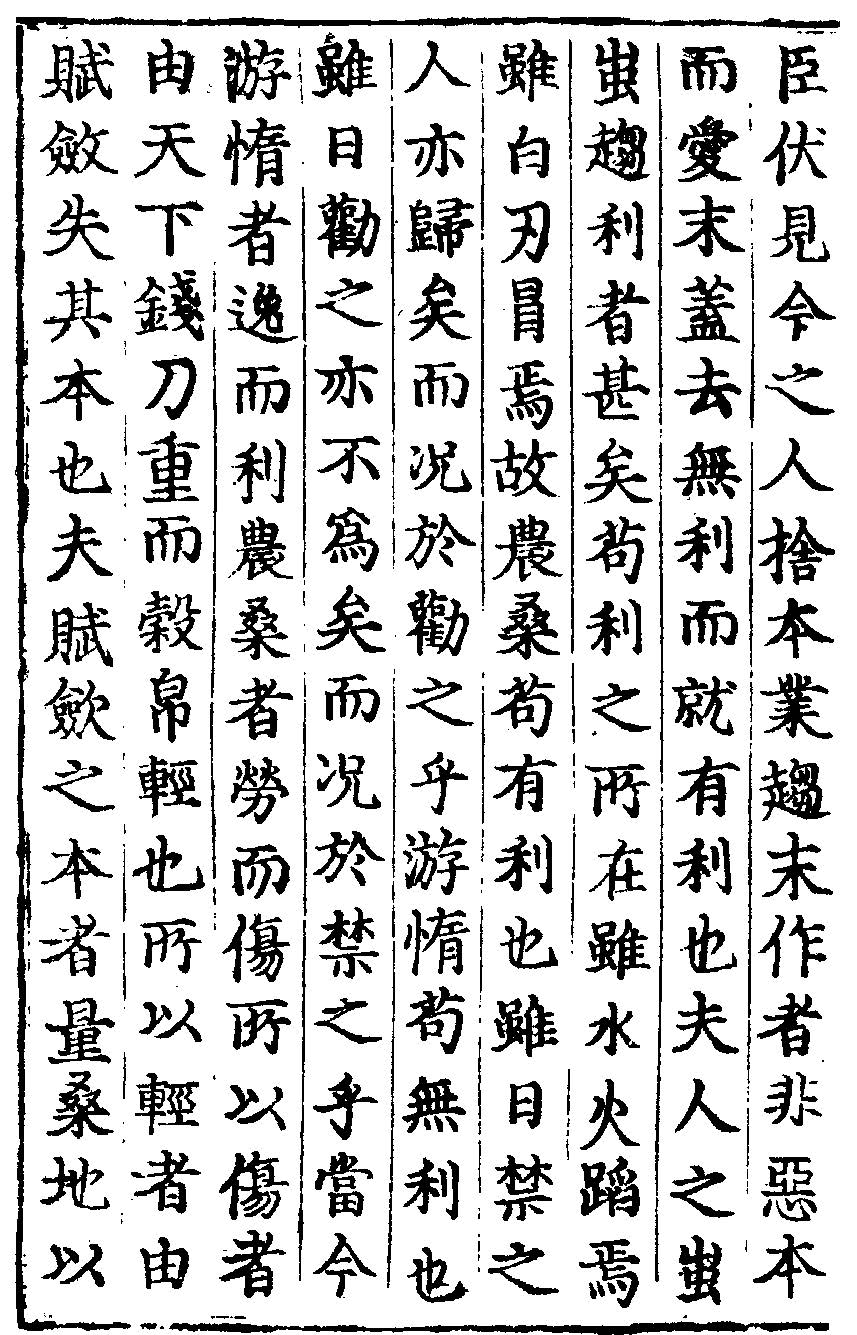 臣伏見今之人捨本業趨末作者非惡本
而愛末蓋去無利而就有利也夫人之蚩
蚩趨利者甚矣苟利之所在雖水火蹈焉
雖白刃冒焉故農桑苟有利也雖日禁之
人亦歸矣而况於勸之乎游惰苟無利也
雖日勸之亦不為矣而况於禁之乎當今
游惰者逸而利農桑者勞而傷所以傷者
由天下錢刀重而穀帛輕也所以輕者由
賦斂失其本也夫賦斂之本者量桑地以